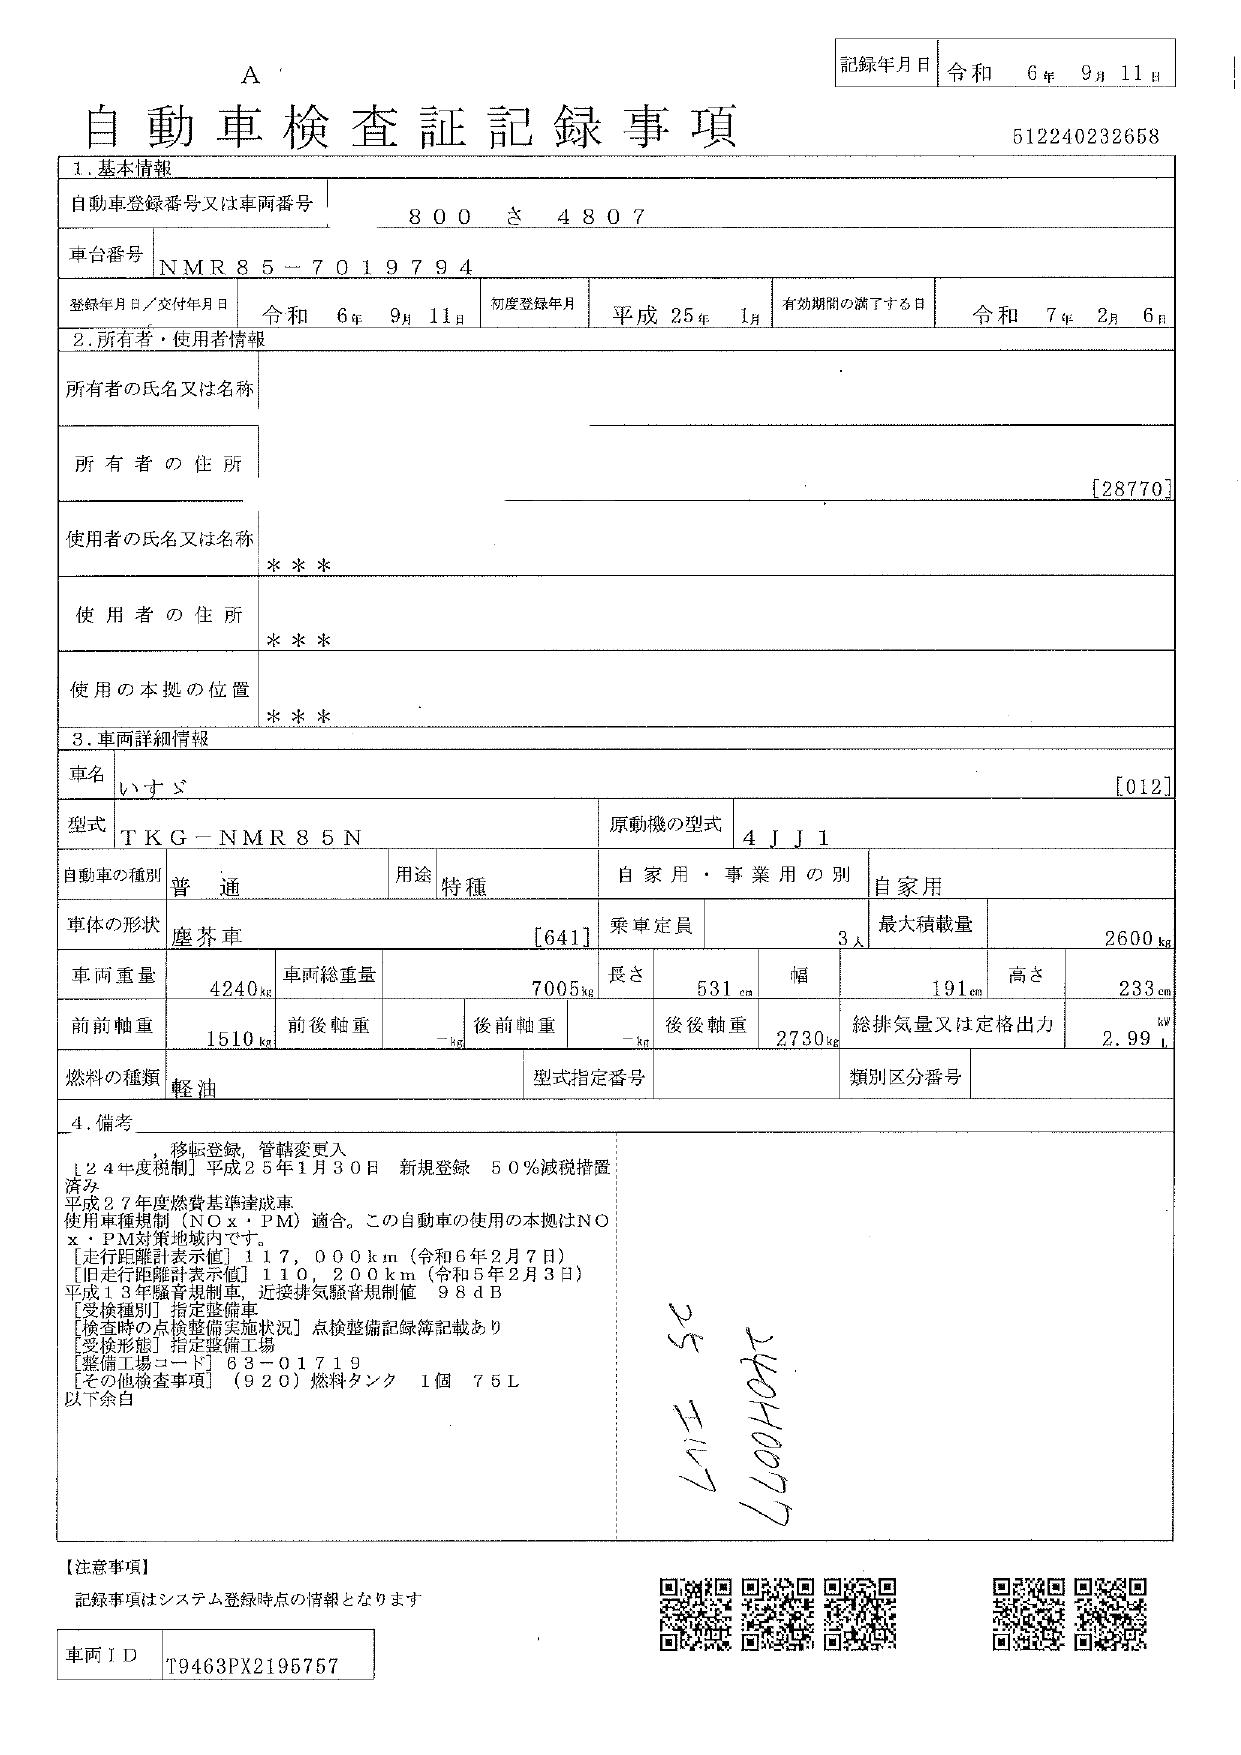 A
記録年月日 令和 6年 9月 11日
自動車検査証記録事項
512240232658
1.基本情報
自動車登録番号又は車両番号 800 さ 4807
車台番号 NMR85-7019794
登録年月日/交付年月日 令和 6年 9月 11日 初度登録年月 平成 25年 1月 有効期間の満了する日 令和 7年 2月 6日
2.所有者・使用者情報
所有者の氏名又は名称
所有者の住所 [28770]
使用者の氏名又は名称 ***
使用者の住所 ***
使用の本拠の位置 ***
3.車両詳細情報
車名 いすゞ [012]
型式 TKG-NMR85N 原動機の型式 4JJ1
自動車の種別 普通 用途 特種 自家用・事業用の別 自家用
車体の形状 塵芥車 [641] 乗車定員 3人 最大積載量 2600kg
車両重量 4240kg 車両総重量 7005kg 長さ 531cm 幅 191cm 高さ 233cm
前前軸重 1510kg 前後軸重 -kg 後前軸重 -kg 後後軸重 2730kg 総排気量又は定格出力 2.99 kW L
燃料の種類 軽油 型式指定番号 類別区分番号
4.備考
,移転登録,管轄変更入
[24年度税制]平成25年1月30日 新規登録 50%減税措置
済み
平成27年度燃費基準達成車
使用車種規制(NOx・PM)適合。この自動車の使用の本拠はNO
x・PM対策地域内です。
[走行距離計表示値]117,000km(令和6年2月7日)
[旧走行距離計表示値]110,200km(令和5年2月3日)
平成13年騒音規制車,近接排気騒音規制値 98dB
[受検種別]指定整備車
[検査時の点検整備実施状況]点検整備記録簿記載あり
[受検形態]指定整備工場
[整備工場コード]63-01719
[その他検査事項](920)燃料タンク 1個 75L
以下余白
【注意事項】
記録事項はシステム登録時点の情報となります
車両ID T9463PX2195757